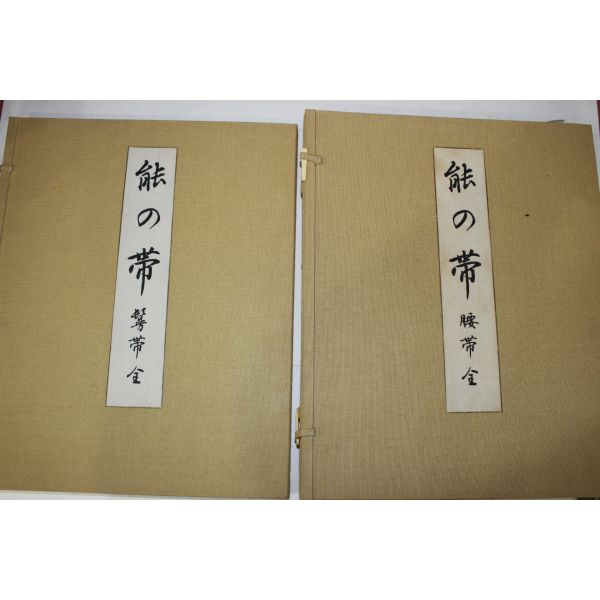 能の帯 鬘帯 全
能の帯 腰帯 全